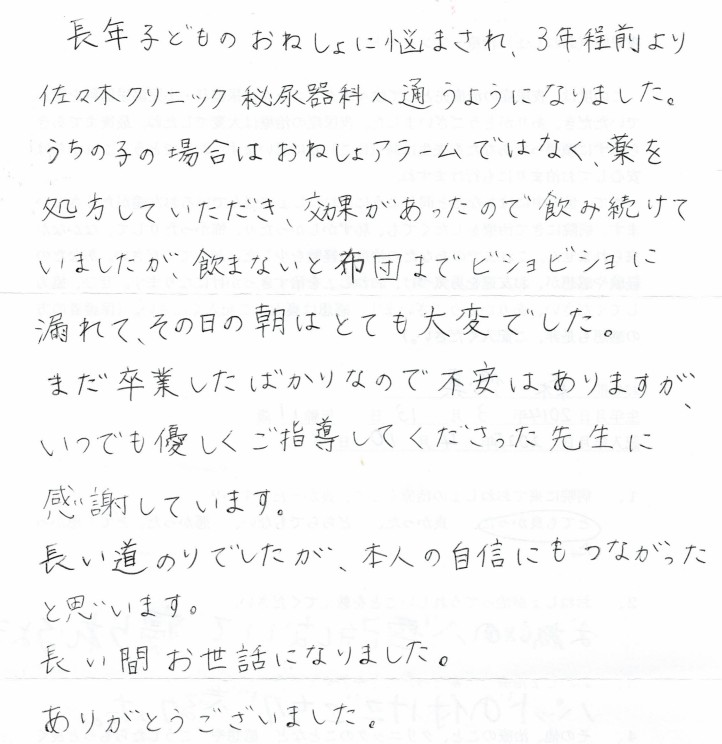 長年子どものおねしょに悩まされ、3年程前より
佐々木クリニック泌尿器科へ通うようになりました。
うちの子の場合はおねしょアラームではなく、薬を
処方していただき、効果があったので飲み続けて
いましたが、飲まないと布団までビショビショに
漏れて、その日の朝はとても大変でした。
まだ卒業したばかりなので不安はありますが、
いつでも優しくご指導してくださった先生に
感謝しています。
長い道のりでしたが、本人の自信にもつながった
と思います。
長い間お世話になりました。
ありがとうございました。